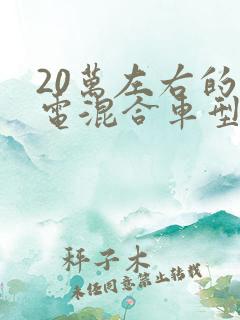 20萬左右的
電混合車型
秤子木
未经同意禁止转载